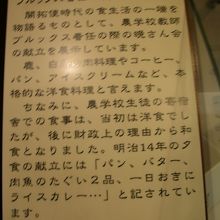 開拓使時代の食生活の一端を
物語るものとして、農学校教師
ブルックス着任の際の晩さん会
の献立を展示しています。
鹿、白鳥の肉料理やコーヒー、
パン、アイスクリームなど、本
格的な洋食料理と言えます。
ちなみに、農学校生徒の寄宿
舎での食事は、当初は洋食でし
たが、後に財政上の理由から和
食となりました。明治14年の夕
食の献立には「パン、バター、
肉魚のたぐい2品、一日おきに
ライスカレー…」と記されてい
ます。